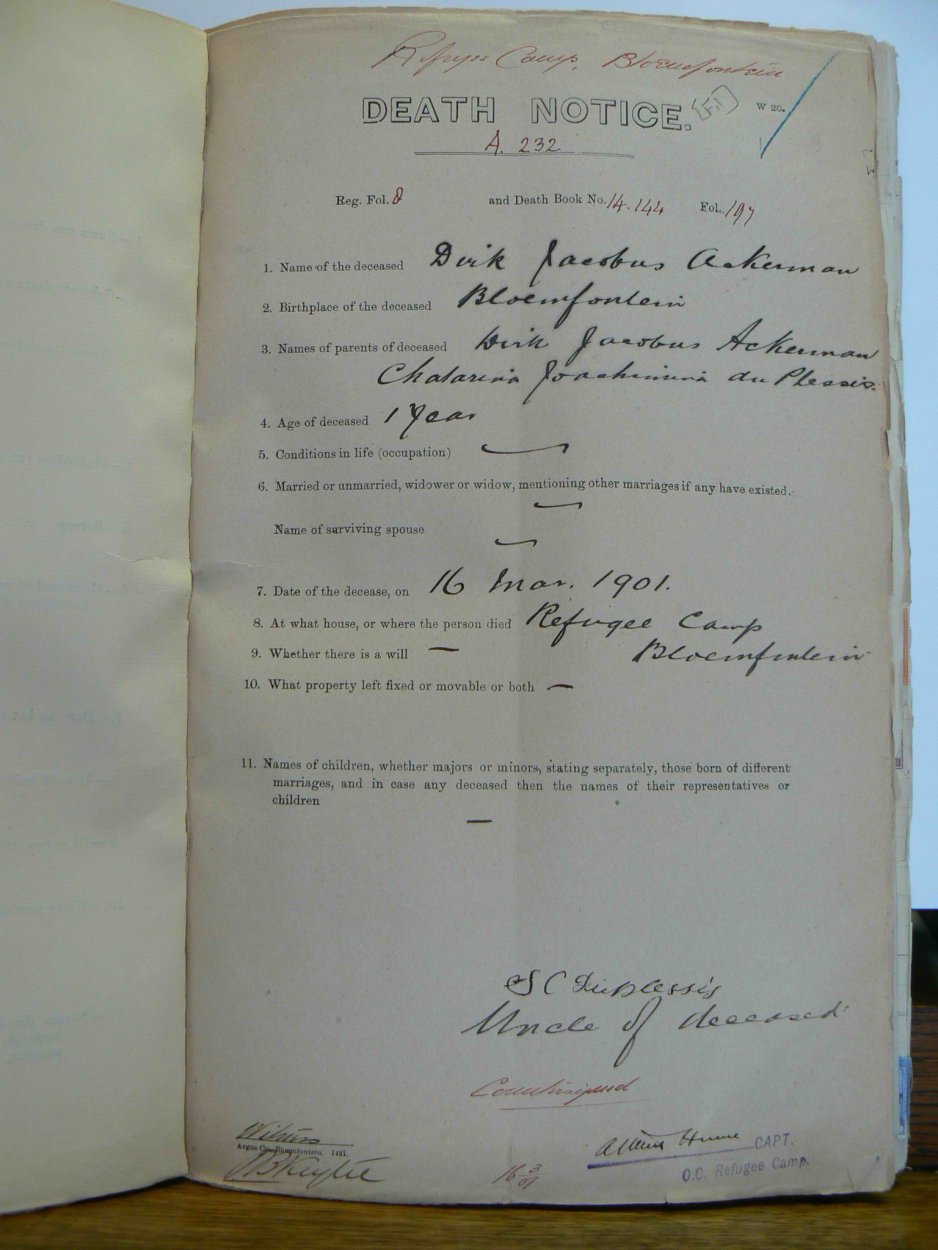 Refugee Camp, Bloemfontein
DEATH NOTICE.
W 20.
A. 232
Reg. Fol. 8 and Death Book No. 14.144 Fol. 197
1. Name of the deceased Dirk Jacobus Ackerman
2. Birthplace of the deceased Bloemfontein
3. Names of parents of deceased Dirk Jacobus Ackerman
Chatarina Joachimina du Plessis.
4. Age of deceased 1 Year
5. Conditions in life (occupation)
6. Married or unmarried, widower or widow, mentioning other marriages if any have existed.
Name of surviving spouse
7. Date of the decease, on 16 Mar. 1901.
8. At what house, or where the person died Refugee Camp
Bloemfontein
9. Whether there is a will —
10. What property left fixed or movable or both —
11. Names of children, whether majors or minors, stating separately, those born of different
marriages, and in case any deceased then the names of their representatives or
children
—
S C Duplessis
Uncle of deceased
Countersigned
Witness
Argus Co., Bloemfontein. 1421.
16 3/01
Albert Hume CAPT.
O.C. Refugee Camp.